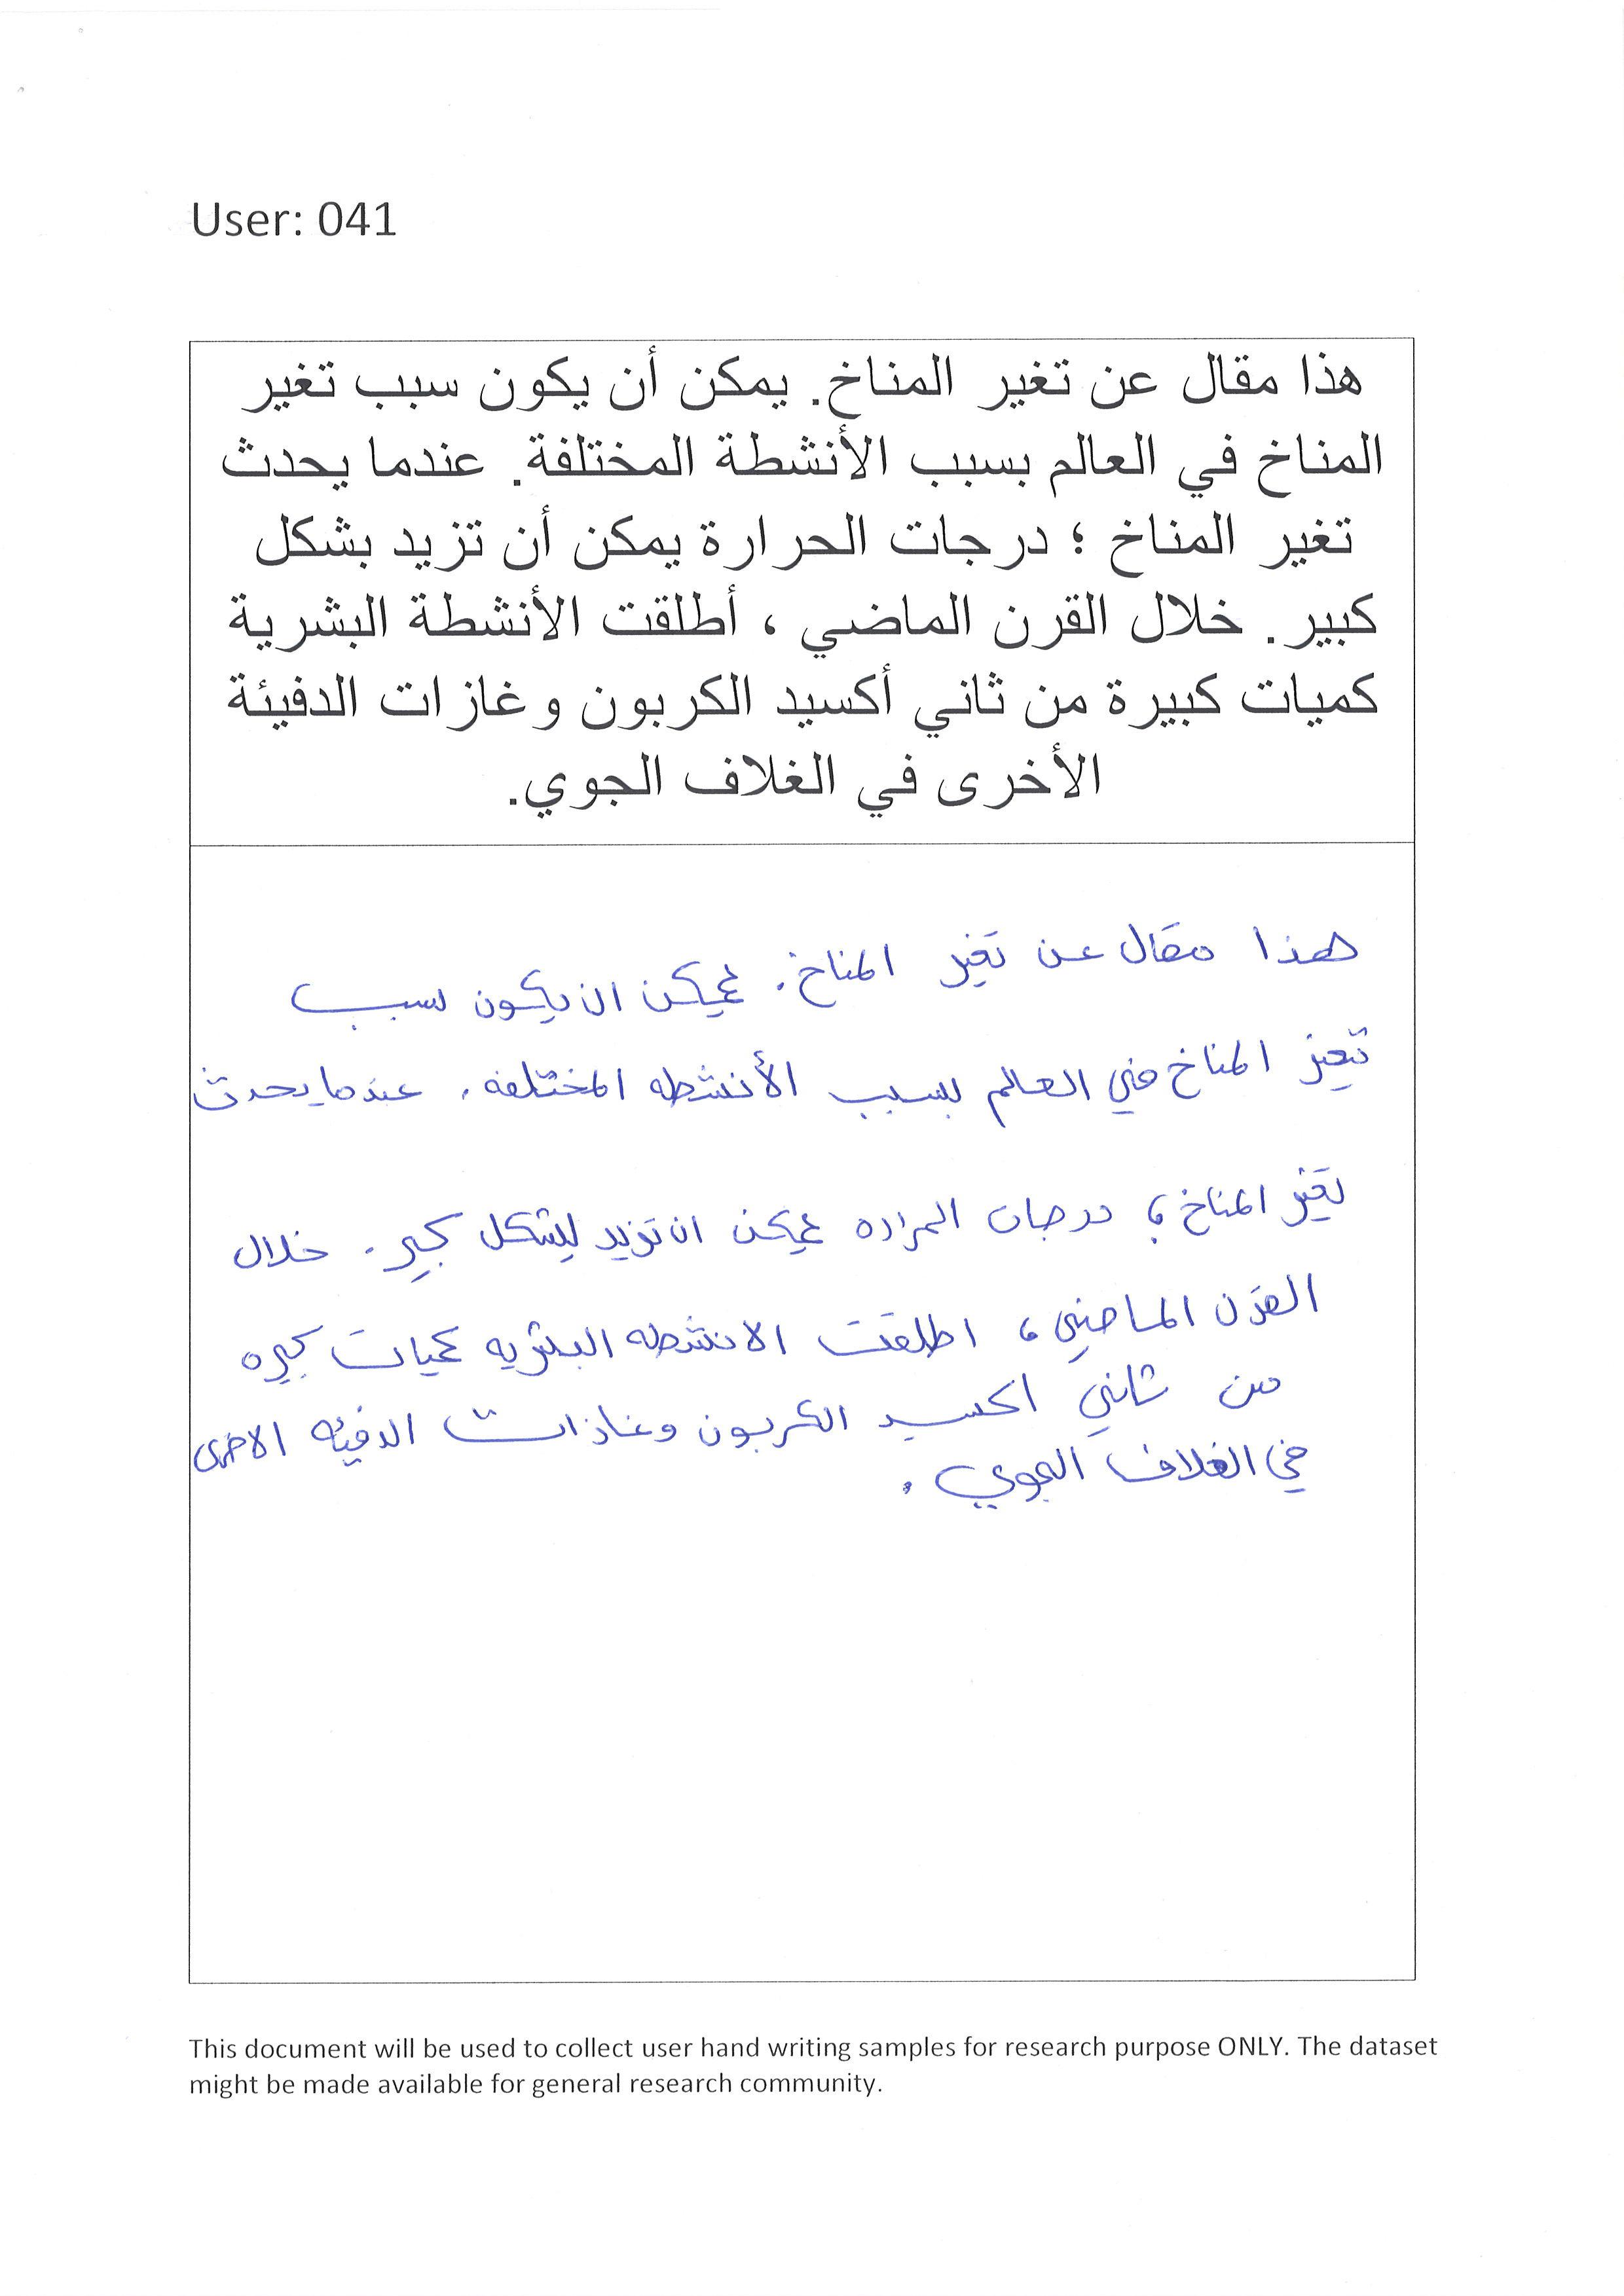 User: 041
هذا مقال عن تغير المناخ. يمكن أن يكون سبب تغير
المناخ في العالم بسبب الأنشطة المختلفة. عندما يحدث
تغير المناخ ؛ درجات الحرارة يمكن أن تزيد بشكل
كبير. خلال القرن الماضي ، أطلقت الأنشطة البشرية
كميات كبيرة من ثاني أكسيد الكربون وغازات الدفيئة
الأخرى في الغلاف الجوي.
هذا مقال عن تغير المناخ. يمكن ان يكون سبب
تغير المناخ في العالم بسبب الأنشطه المختلفه. عندما يحدث
تغير المناخ ؛ درجات الحراره يمكن ان تزيد بشكل كبير. خلال
القرن الماضي ، اطلقت الانشطه البشريه كميات كبيره
من ثاني اكسيد الكربون وغازات الدفيئه الاخرى
في الغلاف الجوي .
This document will be used to collect user hand writing samples for research purpose ONLY. The dataset
might be made available for general research community.